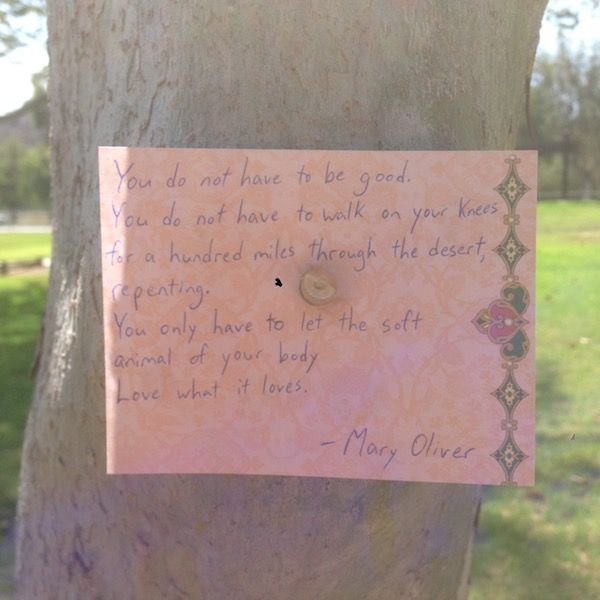 You do not have to be good.
You do not have to walk on your Knees
for a hundred miles through the desert,
repenting.
You only have to let the soft
animal of your body
Love what it loves.
- Mary Oliver